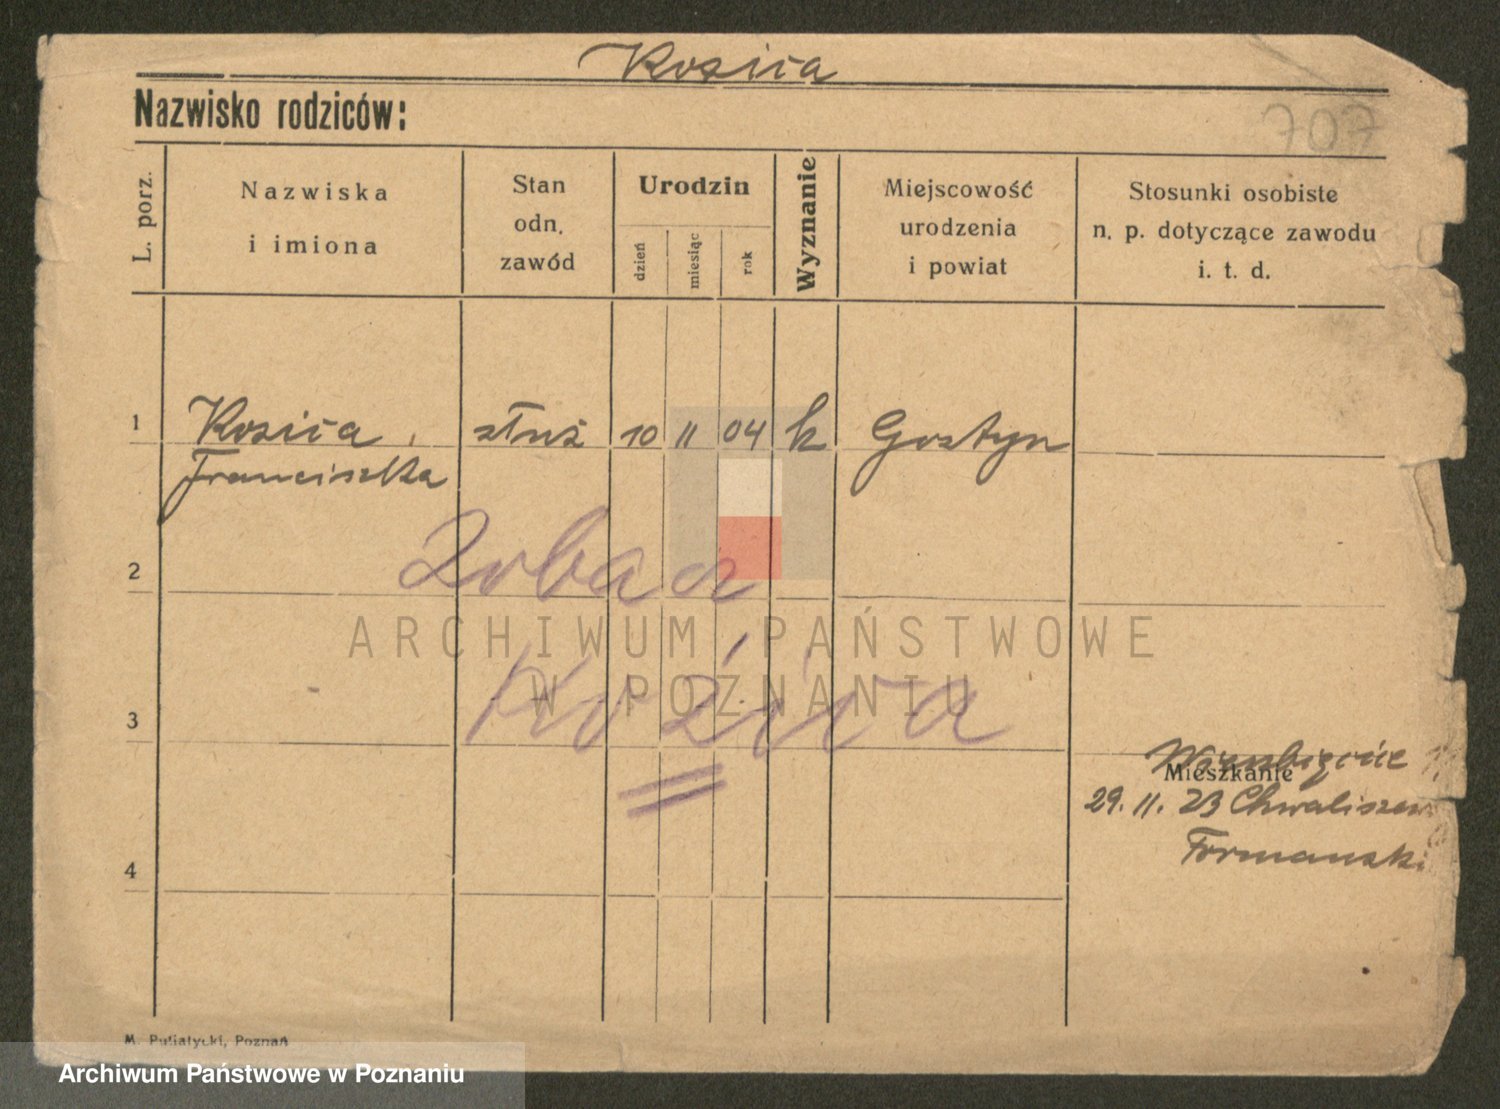 Kosiia
Nazwisko rodziców:
707
L. porz.
Nazwiska
i imiona
Stan
odn.
zawód
Urodzin
dzień
miesiąc
rok
Wyznanie
Miejscowość
urodzenia
i powiat
Stosunki osobiste
n. p. dotyczące zawodu
i. t. d.
1
Kosiia
służ
10
11
04
k
Gostyn
Franciszka
Zobacz
2
ARCHIWUM PAŃSTWOWE
W POZNANIU
Koźira
3
Mieszkanie
29. 11. 23 Chwaliszew
Formanski
4
M. Putiatycki, Poznań
Archiwum Państwowe w Poznaniu